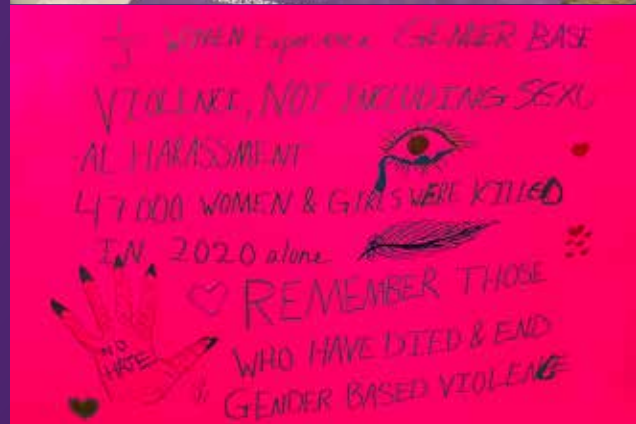 1/3 WOMEN Experience GENDER BASE
VIOLENCE, NOT INCLUDING SEXU
AL HARASSMENT
47000 WOMEN & GIRLS WERE KILLED
IN 2020 alone
REMEMBER THOSE
WHO HAVE DIED & END
GENDER BASED VIOLENCE
NO
HATE